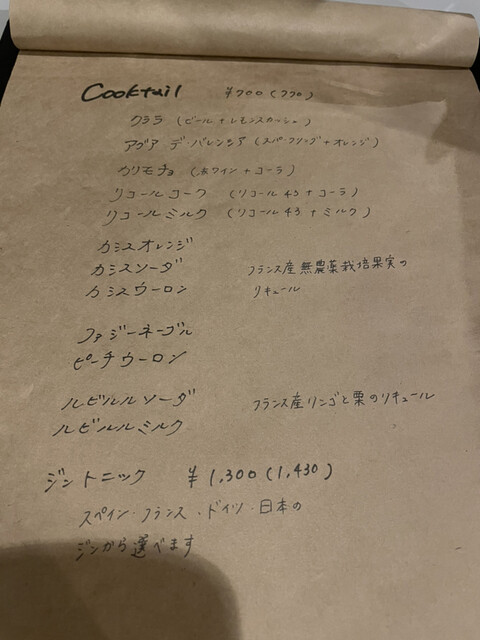 Cooktail ¥700(770)
クララ (ビール+レモンスカッシュ)
アグア デ・バレンシア (スパークリング+オレンジ)
カリモチョ (赤ワイン+コーラ)
リコールコーク (リコール43+コーラ)
リコールミルク (リコール43+ミルク)
カシスオレンジ
カシスソーダ フランス産無農薬栽培果実の
カシスウーロン リキュール
ファジーネーブル
ピーチウーロン
ルビルルソーダ フランス産リンゴと栗のリキュール
ルビルルミルク
ジントニック ¥1,300(1,430)
スペイン・フランス・ドイツ・日本の
ジンから選べます